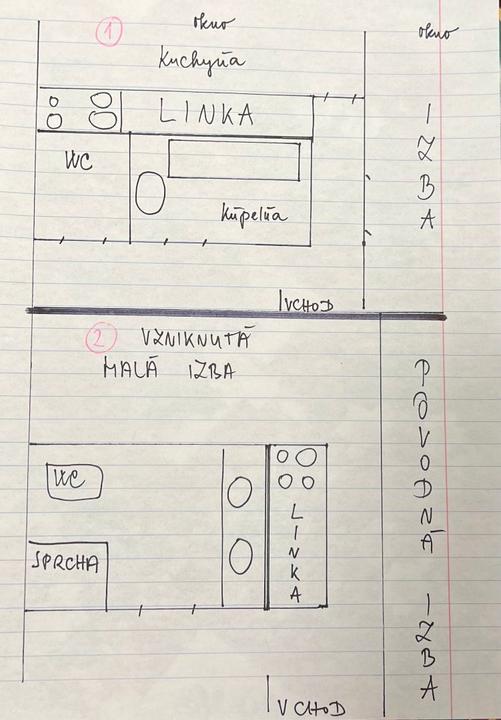 1
okno
okno
Kuchyňa
LINKA
IZBA
WC
Kúpelňa
VCHOD
2 VZNIKNUTÁ
MALÁ IZBA
PÔVODNÁ IZBA
WC
LINKA
SPRCHA
VCHOD